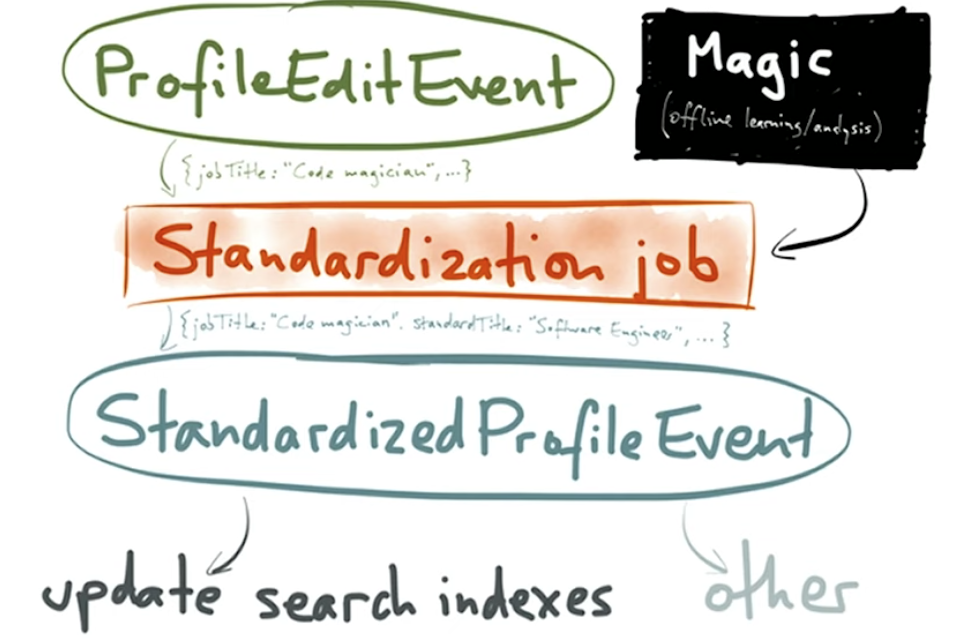 ProfileEditEvent
Magic
(offline learning/analysis)
{jobTitle: "Code magician", ...}
Standardization job
{jobTitle: "Code magician", standardTitle: "Software Engineer", ... }
StandardizedProfileEvent
update search indexes
other